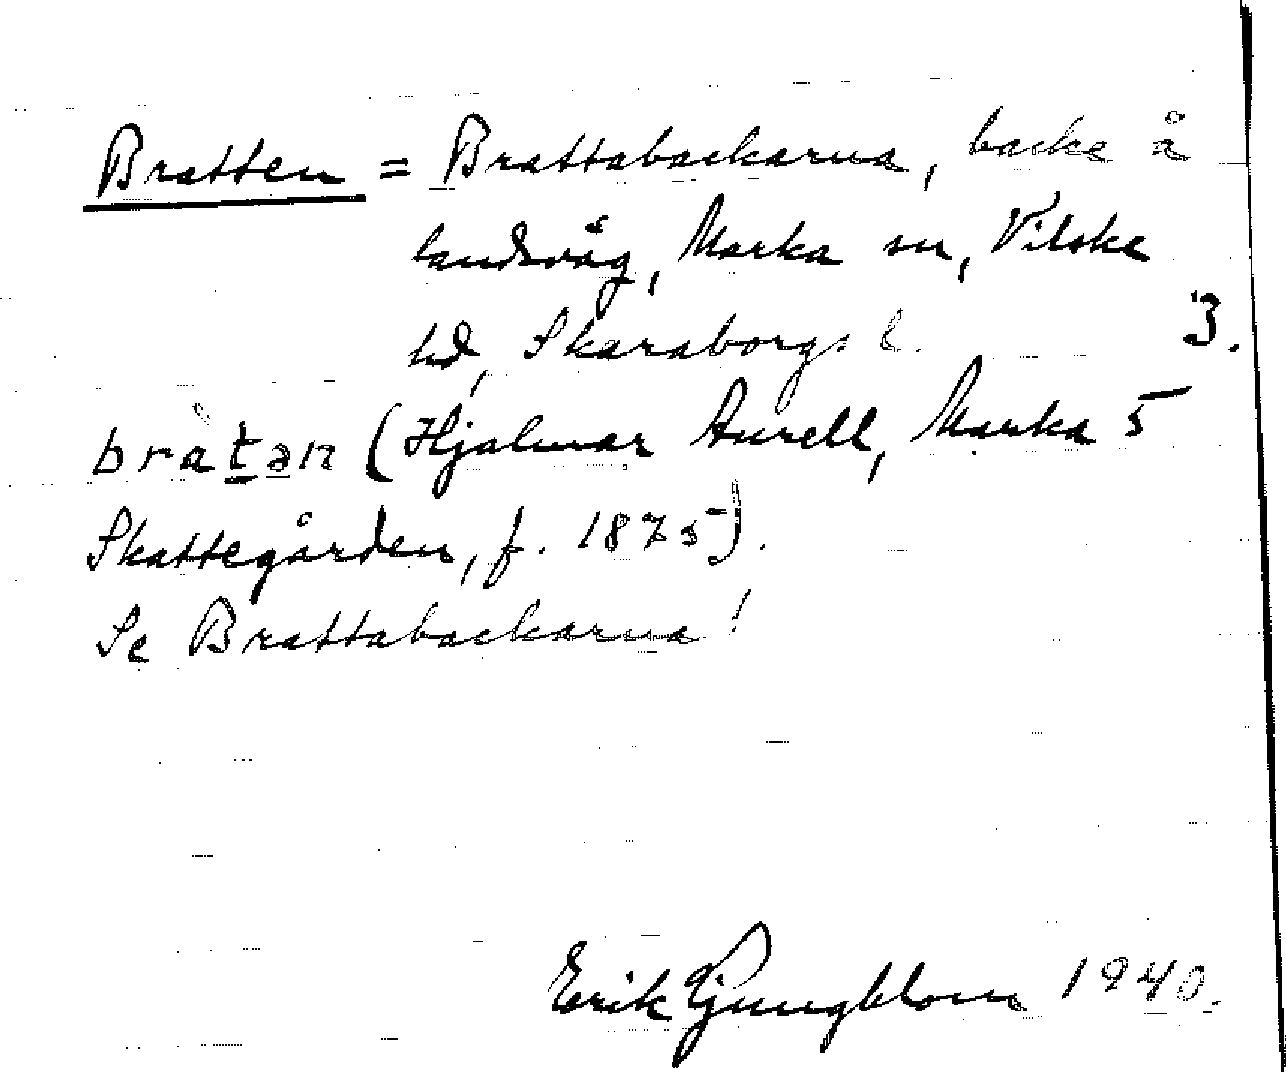 Bratten = Brattabackarna, backe å
landsväg, Marka sn, Vilske
hd, Skaraborgs l. 3.
bràtən (Hjalmar Aurell, Marka 5
Skattegården, f. 1875).
Se Brattabackarna!
Erik Ljungblom 1940.